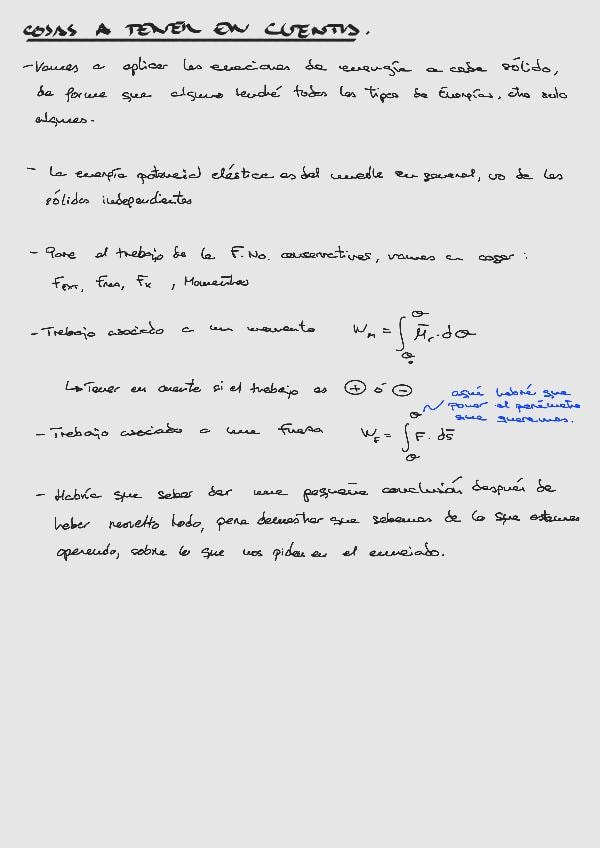 COSAS A TENER EN CUENTA.
- Vamos a aplicar las ecuaciones de energía a cada sólido,
de forma que alguno tendrá todos los tipos de Energías, otro solo
algunas.
- La energía potencial elástica es del muelle en general, no de los
sólidos independientes
- Para el trabajo de la F. No. conservativas, vamos a coger :
F_EXT, F_roz, F_K , Momentos
- Trabajo asociado a un momento W_M = ∫_θ₀^θ M̄_r · dθ
↳ Tener en cuenta si el trabajo es ⊕ ó ⊖
aquí habrá que
poner el parámetro
que queramos.
- Trabajo asociado a una fuerza W_F = ∫_θ^θ F · ds̄
- Habría que saber dar una pequeña conclusión después de
haber resuelto todo, para demostrar que sabemos de lo que estamos
operando, sobre lo que nos piden en el enunciado.